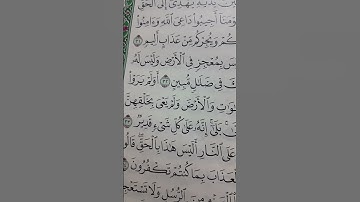 يَدَيْهِ يَهْدِي إِلَى الْحَقِّ
وَمَنَا أَجِيبُوا دَاعِيَ اللَّهِ وَءَامِنُوا
كُمْ وَيُجِرْكُم مِّنْ عَذَابٍ أَلِيمٍ ٣١
سَ بِمُعْجِزٍ فِي الْأَرْضِ وَلَيْسَ لَهُ
كَ فِي ضَلَالٍ مُّبِينٍ ٣٢ أَوَلَمْ يَرَوْا
وَاتِ وَالْأَرْضَ وَلَمْ يَعْيَ بِخَلْقِهِنَّ
بَلَىٰ إِنَّهُ عَلَىٰ كُلِّ شَيْءٍ قَدِيرٌ ٣٣
عَلَى النَّارِ أَلَيْسَ هَٰذَا بِالْحَقِّ قَالُوا
الْعَذَابَ بِمَا كُنتُمْ تَكْفُرُونَ ٣٤
مِنَ الرُّسُلِ وَلَا تَسْتَعْجِل